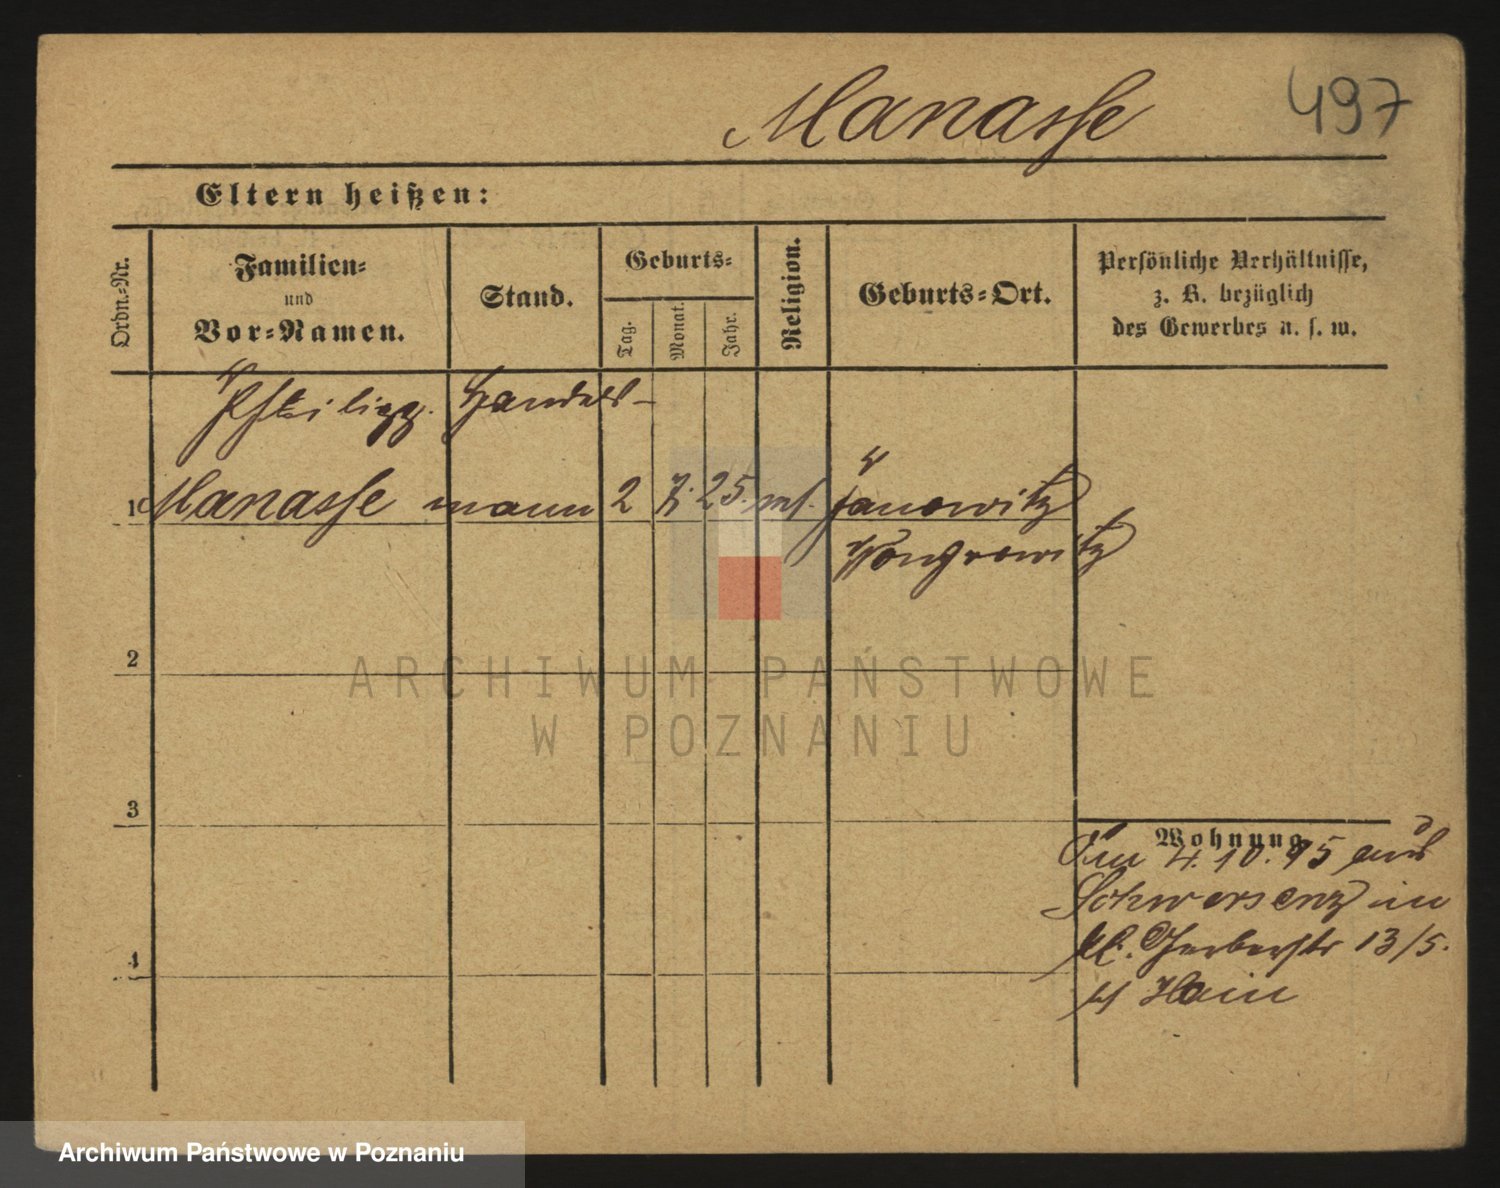 Manasse 497
Eltern heißen:
Ordn.-Nr.
Familien-
und
Vor-Namen.
Stand.
Geburts-
Tag.
Monat.
Jahr.
Religion.
Geburts-Ort.
Persönliche Verhältnisse,
z. B. bezüglich
des Gewerbes u. s. w.
Philipp. Handels-
1 Manasse mann 2 7. 25. Janowitz
Wongrowitz
2
ARCHIWUM PAŃSTWOWE
W POZNANIU
3
Wohnung
4. 10. 95 aus
Schwersenz in
kl. Gerberstr 13/5.
4
Archiwum Państwowe w Poznaniu